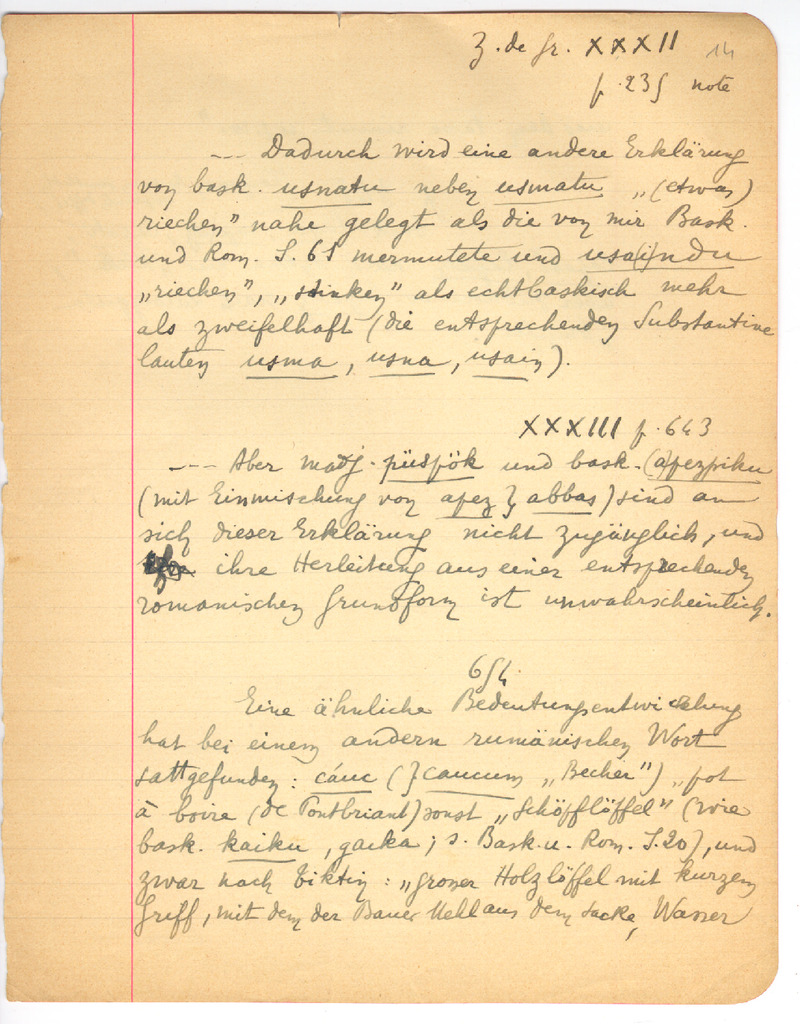 Z. de Gr. XXXII 14
p. 235 note
--- Dadurch wird eine andere Erklärung
von bask. usnatu neben usmatu „(etwas)
riechen" nahe gelegt als die von mir Bask.
und Rom. S. 61 mermutete und usa(i)ndu
„riechen", „stinken" als echtbaskisch mehr
als zweifelhaft (die entsprechenden Substantive
lauten usma, usna, usain).
XXXIII p. 643
--- Aber madj. püspök und bask. (apezpiku
(mit Einmischung von apez } abbas) sind an
sich dieser Erklärung nicht zugänglich, und
ihre Herleitung aus einer entsprechenden
romanischen Grundform ist unwahrscheinlich.
654.
Eine ähnliche Bedeutungsentwickelung
hat bei einem andern rumänischen Wort
sattgefunden : cáuc (} caucum „Becher") „pot
à boire (de Pontbriant) sonst „Schöpflöffel" (wie
bask. kaiku, gaika ; s. Bask. u. Rom. S. 20), und
zwar nach Tiktin : „grosser Holzlöffel mit kurzem
Griff, mit dem der Bauer Mehl aus dem Sacke, Wasser